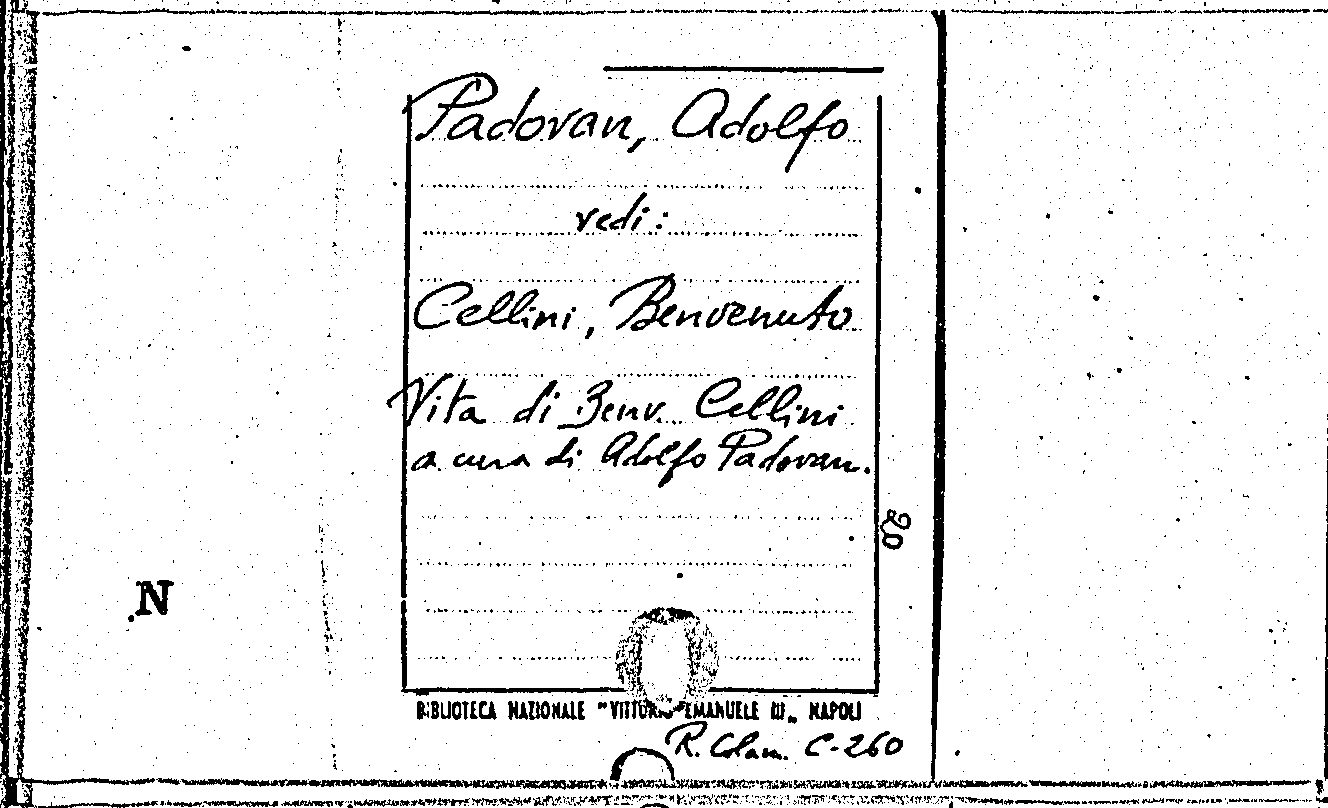 Padovan, Adolfo
vedi:
Cellini, Benvenuto
Vita di Benv. Cellini
a cura di Adolfo Padovan.
20
N
BIBLIOTECA NAZIONALE "VITTORIO EMANUELE III„ NAPOLI
R. Colam. C-260